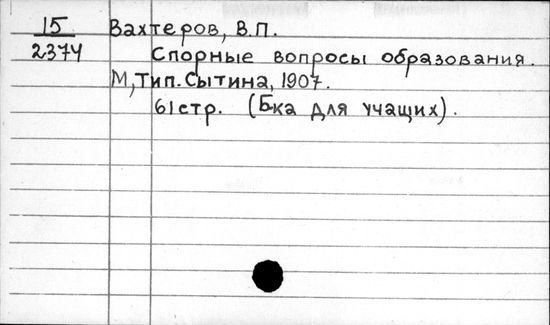 15 Вахтеров, В.П.
2374 Спорные вопросы образования.
М, Тип. Сытина, 1907.
61 стр. (Б-ка для учащих).